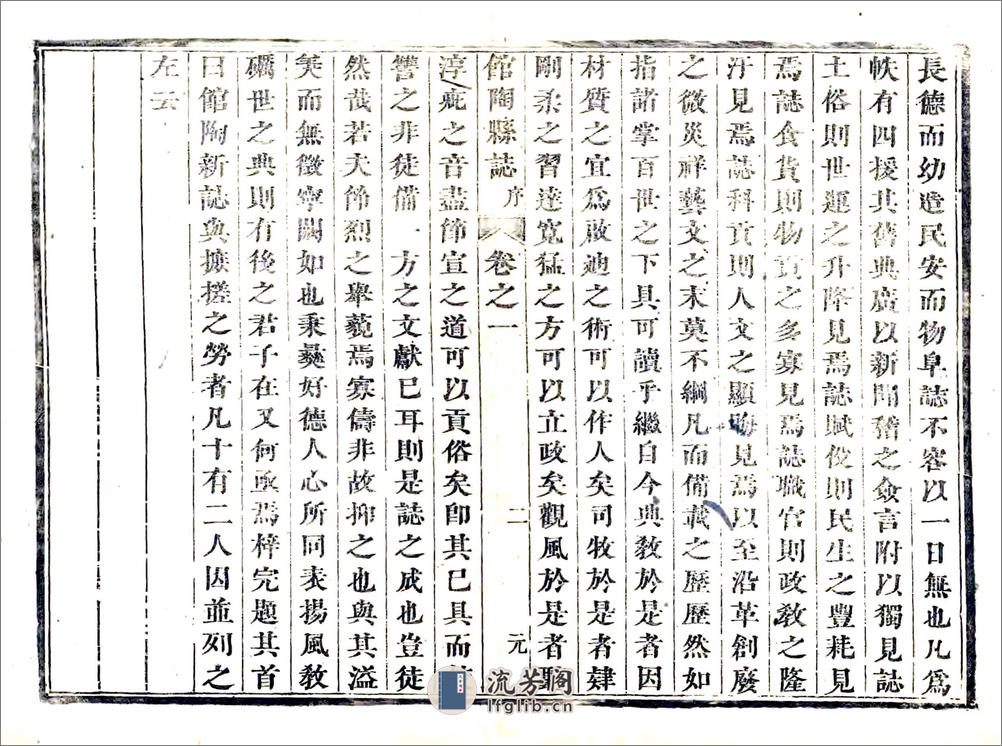 長德而幼造民安而物阜誌不容以一日無也凡為
帙有四援其舊典廣以新聞稽之僉言附以獨見誌
土俗則世運之升降見焉誌賦役則民生之豐耗見
焉誌食貨則物貢之多寡見焉誌職官則政教之隆
汙見焉誌科貢則人文之顯晦見焉以至沿革創廢
之微災祥藝文之末莫不綱凡而備載之歷歷然如
指諸掌百世之下具可讀乎繼自今典敎於是者因
材質之宜爲啟迪之術可以作人矣司牧於是者肄
剛柔之習達寬猛之方可以立政矣觀風於是者聆
館陶縣誌 序 卷之一 二 元
淳疵之音盡節宣之道可以貢俗矣卽其已具而
讐之非徒備一方之文獻已耳則是誌之成也豈徒
然哉若夫節烈之舉藐焉寡儔非故抑之也與其溢
美而無徵寧闕如也秉彝好德人心所同表揚風敎
礪世之典則有後之君子在又何亟焉梓完題其首
曰館陶新誌與摭搓之勞者凡十有二人因並列之
左云
流芳閣
lfglib.cn